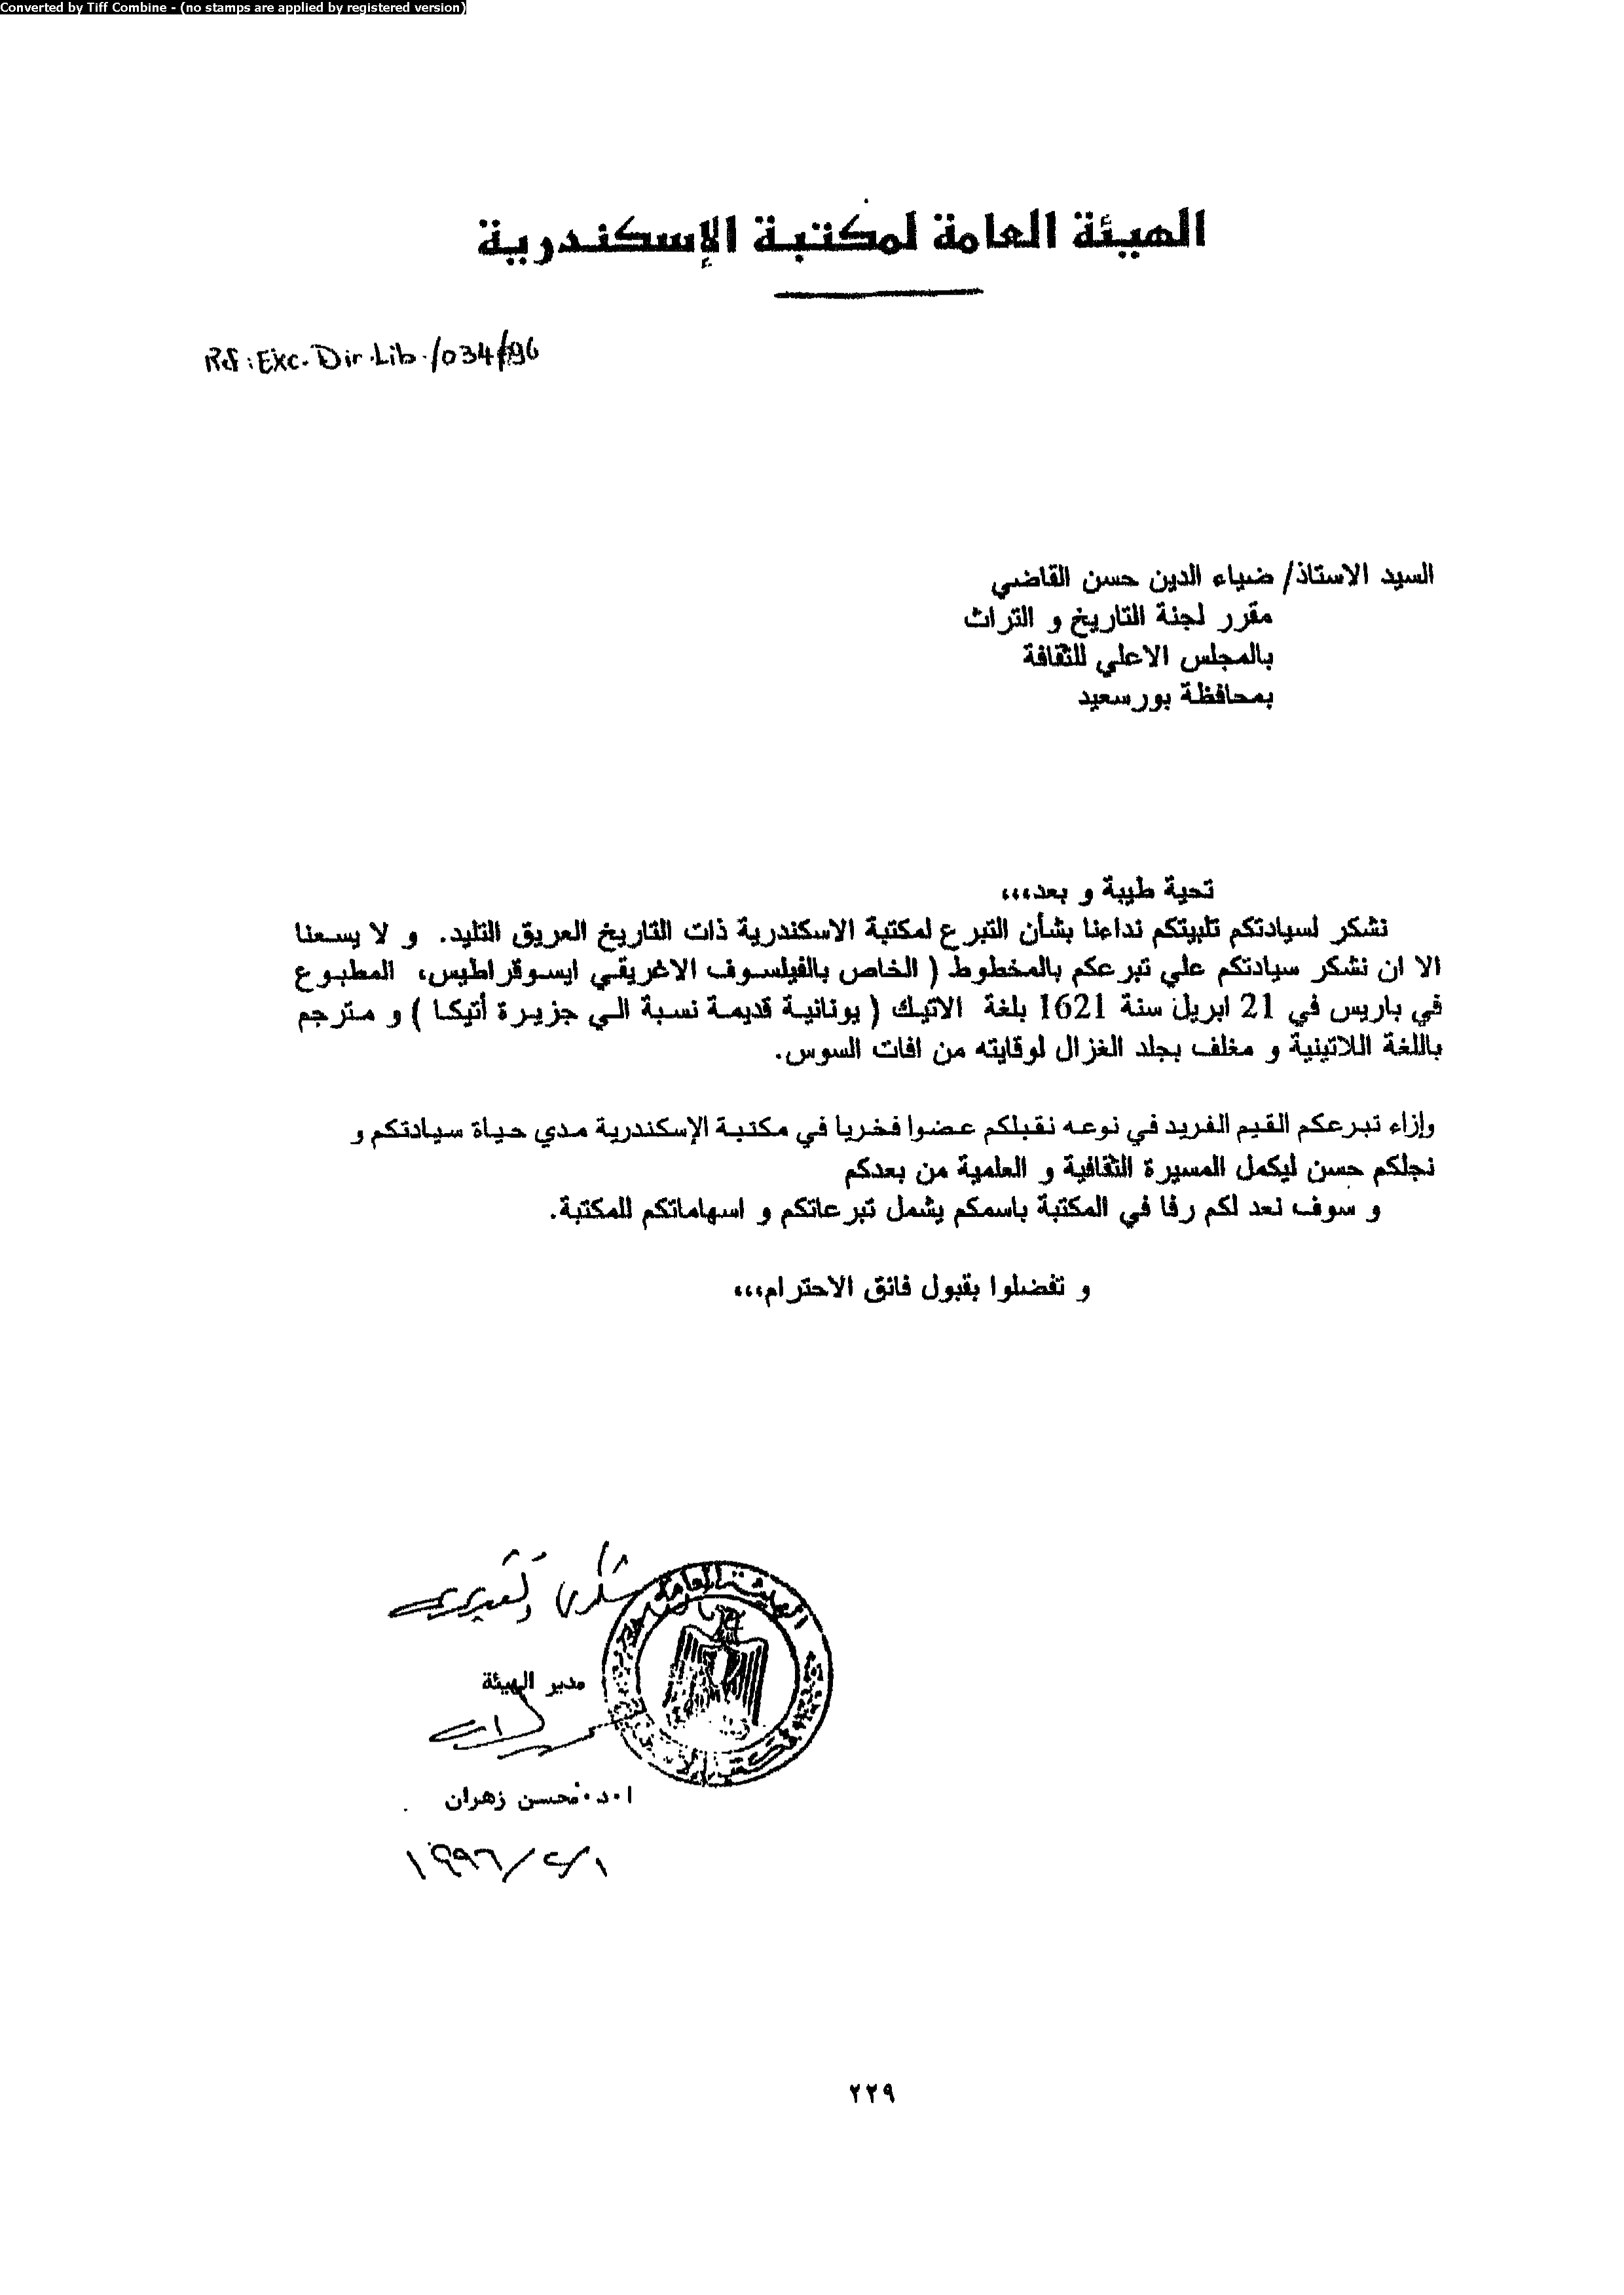 Converted by Tiff Combine - (no stamps are applied by registered version)
الهيئة العامة لمكتبة الإسكندرية
Ref: Exc. Dir. Lib. /034/96
السيد الاستاذ/ ضياء الدين حسن القاضي
مقرر لجنة التاريخ و التراث
بالمجلس الاعلي للثقافة
بمحافظة بورسعيد
تحية طيبة و بعد،،،
نشكر لسيادتكم تلبيتكم نداءنا بشأن التبرع لمكتبة الاسكندرية ذات التاريخ العريق التليد. و لا يسعنا
الا ان نشكر سيادتكم علي تبرعكم بالمخطوط ( الخاص بالفيلسوف الاغريقي ايسوقراطيس، المطبوع
في باريس في 21 ابريل سنة 1621 بلغة الاتيك ( يونانية قديمة نسبة الي جزيرة أتيكا ) و مترجم
باللغة اللاتينية و مغلف بجلد الغزال لوقايته من افات السوس.
وإزاء تبرعكم القيم الفريد في نوعه نقبلكم عضوا فخريا في مكتبة الإسكندرية مدي حياة سيادتكم و
نجلكم حسن ليكمل المسيرة الثقافية و العلمية من بعدكم
و سوف نعد لكم رفا في المكتبة باسمكم يشمل تبرعاتكم و اسهاماتكم للمكتبة.
و تفضلوا بقبول فائق الاحترام،،،
شكري وتقديري
الهيئة العامة
مدير الهيئة
ا.د.محسن زهران
٢٢٩